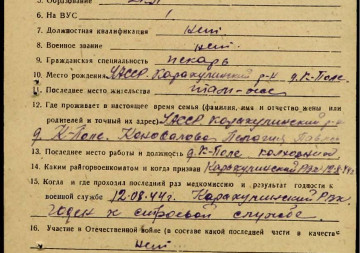 5. Образование
6. На ВУС 1
7. Должностная квалификация нет
8. Военное звание нет.
9. Гражданская специальность пекарь
10. Место рождения УАССР. Каракулинский р-н д. К-Поле.
11. Последнее место жительства там-же
12. Где проживает в настоящее время семья (фамилия, имя и отчество жены или
родителей и точный их адрес) УАССР Каракулинский р-н
д. К-Поле. Коновалова Пелагия
13. Последнее место работы и должность д К-Поле колхозник
14. Каким райгорвоенкоматом и когда призван Каракулинский РВК
15. Когда и где проходил раз медкомиссию и результат годности к
военной службе 12.08.44г. Каракулинский РВК.
годен к строевой службе.
16. Участие в Отечественной войне (в составе какой последней части в качестве
нет